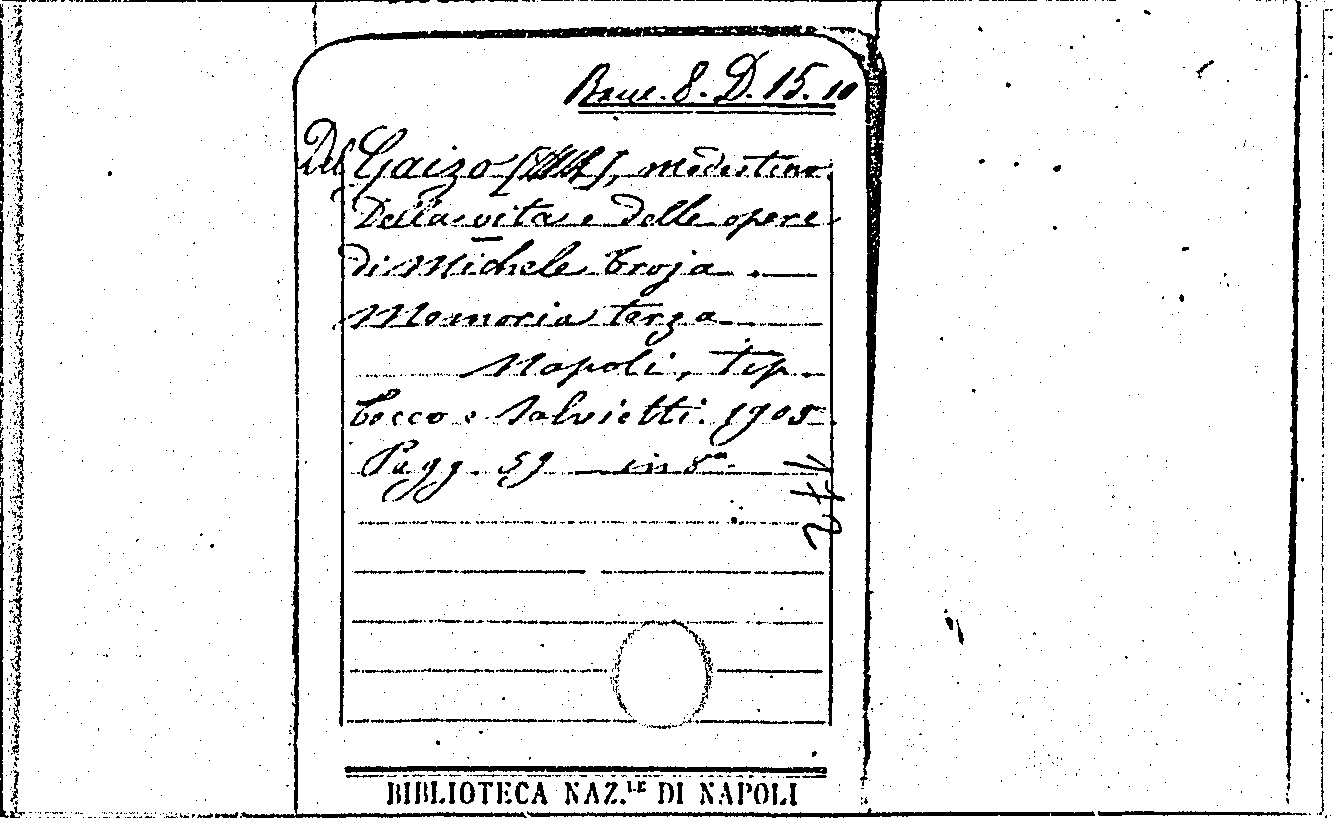 Banc. 8. D. 15. 10
Del Gaizo [], Modestino
Della vita e delle opere
di Michele Troja. —
Memoria terza
Napoli, Tip.
Tocco e Salvietti. 1905.
Pagg. 59 — in 8º.
BIBLIOTECA NAZ.LE DI NAPOLI